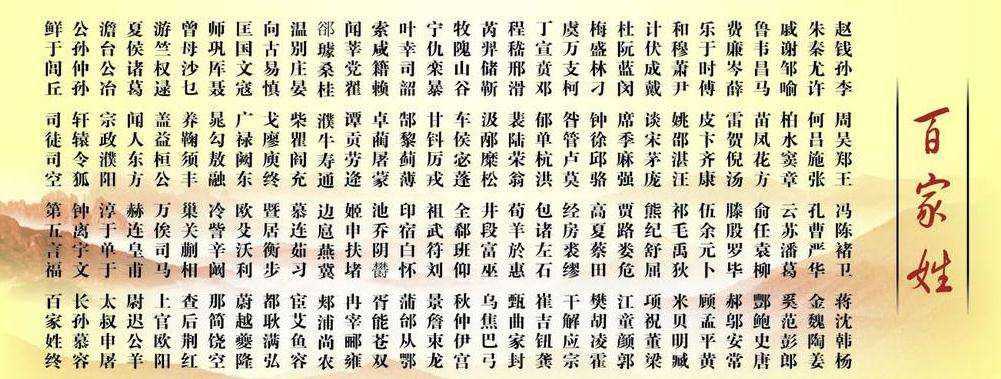 百家姓
赵钱孙李 周吴郑王 冯陈褚卫 蒋沈韩杨
朱秦尤许 何吕施张 孔曹严华 金魏陶姜
戚谢邹喻 柏水窦章 云苏潘葛 奚范彭郎
鲁韦昌马 苗凤花方 俞任袁柳 酆鲍史唐
费廉岑薛 雷贺倪汤 滕殷罗毕 郝邬安常
乐于时傅 皮卞齐康 伍余元卜 顾孟平黄
和穆萧尹 姚邵湛汪 祁毛禹狄 米贝明臧
计伏成戴 谈宋茅庞 熊纪舒屈 项祝董梁
杜阮蓝闵 席季麻强 贾路娄危 江童颜郭
梅盛林刁 钟徐邱骆 高夏蔡田 樊胡凌霍
虞万支柯 昝管卢莫 经房裘缪 干解应宗
丁宣贲邓 郁单杭洪 包诸左石 崔吉钮龚
程嵇邢滑 裴陆荣翁 荀羊於惠 甄曲家封
芮羿储靳 汲邴糜松 井段富巫 乌焦巴弓
牧隗山谷 车侯宓蓬 全郗班仰 秋仲伊宫
宁仇栾暴 甘钭厉戎 祖武符刘 景詹束龙
叶幸司韶 郜黎蓟薄 印宿白怀 蒲邰从鄂
索咸籍赖 卓蔺屠蒙 池乔阴鬱 胥能苍双
闻莘党翟 谭贡劳逄 姬申扶堵 冉宰郦雍
郤璩桑桂 濮牛寿通 边扈燕冀 郏浦尚农
温别庄晏 柴瞿阎充 慕连茹习 宦艾鱼容
向古易慎 戈廖庾终 暨居衡步 都耿满弘
匡国文寇 广禄阙东 欧艾沃利 蔚越夔隆
师巩厍聂 晁勾敖融 冷訾辛阚 那简饶空
曾母沙乜 养鞠须丰 巢关蒯相 查后荆红
游竺权逯 盖益桓公 万俟司马 上官欧阳
夏侯诸葛 闻人东方 赫连皇甫 尉迟公羊
澹台公冶 宗政濮阳 淳于单于 太叔申屠
公孙仲孙 轩辕令狐 钟离宇文 长孙慕容
鲜于闾丘 司徒司空 第五言福 百家姓终